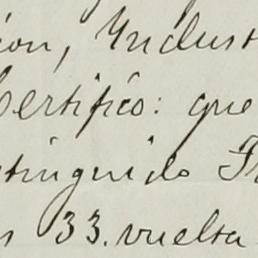 ion, Indust
Certifico: que
stinguido Fr
33. vuelta